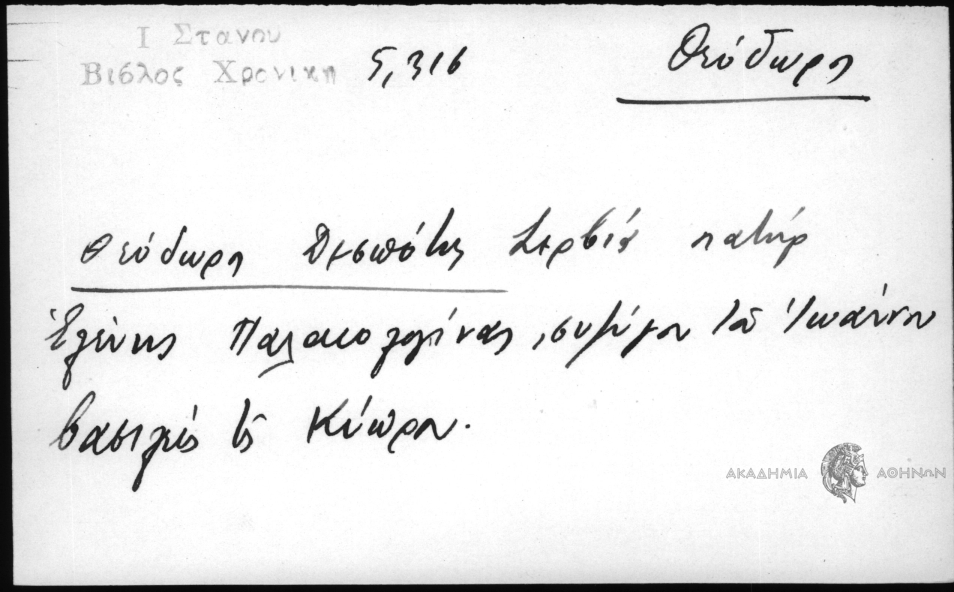 Ι Στανου
Βιβλος Χρονικη 5,316
Θεόδωρος
Θεόδωρος Δεσπότης Σερβία πατήρ
Ἑλένης Παλαιολογίνας, συζύγου τοῦ Ἰωάννου
βασιλέως τῆς Κύπρου.
ΑΚΑΔΗΜΙΑ ΑΘΗΝΩΝ